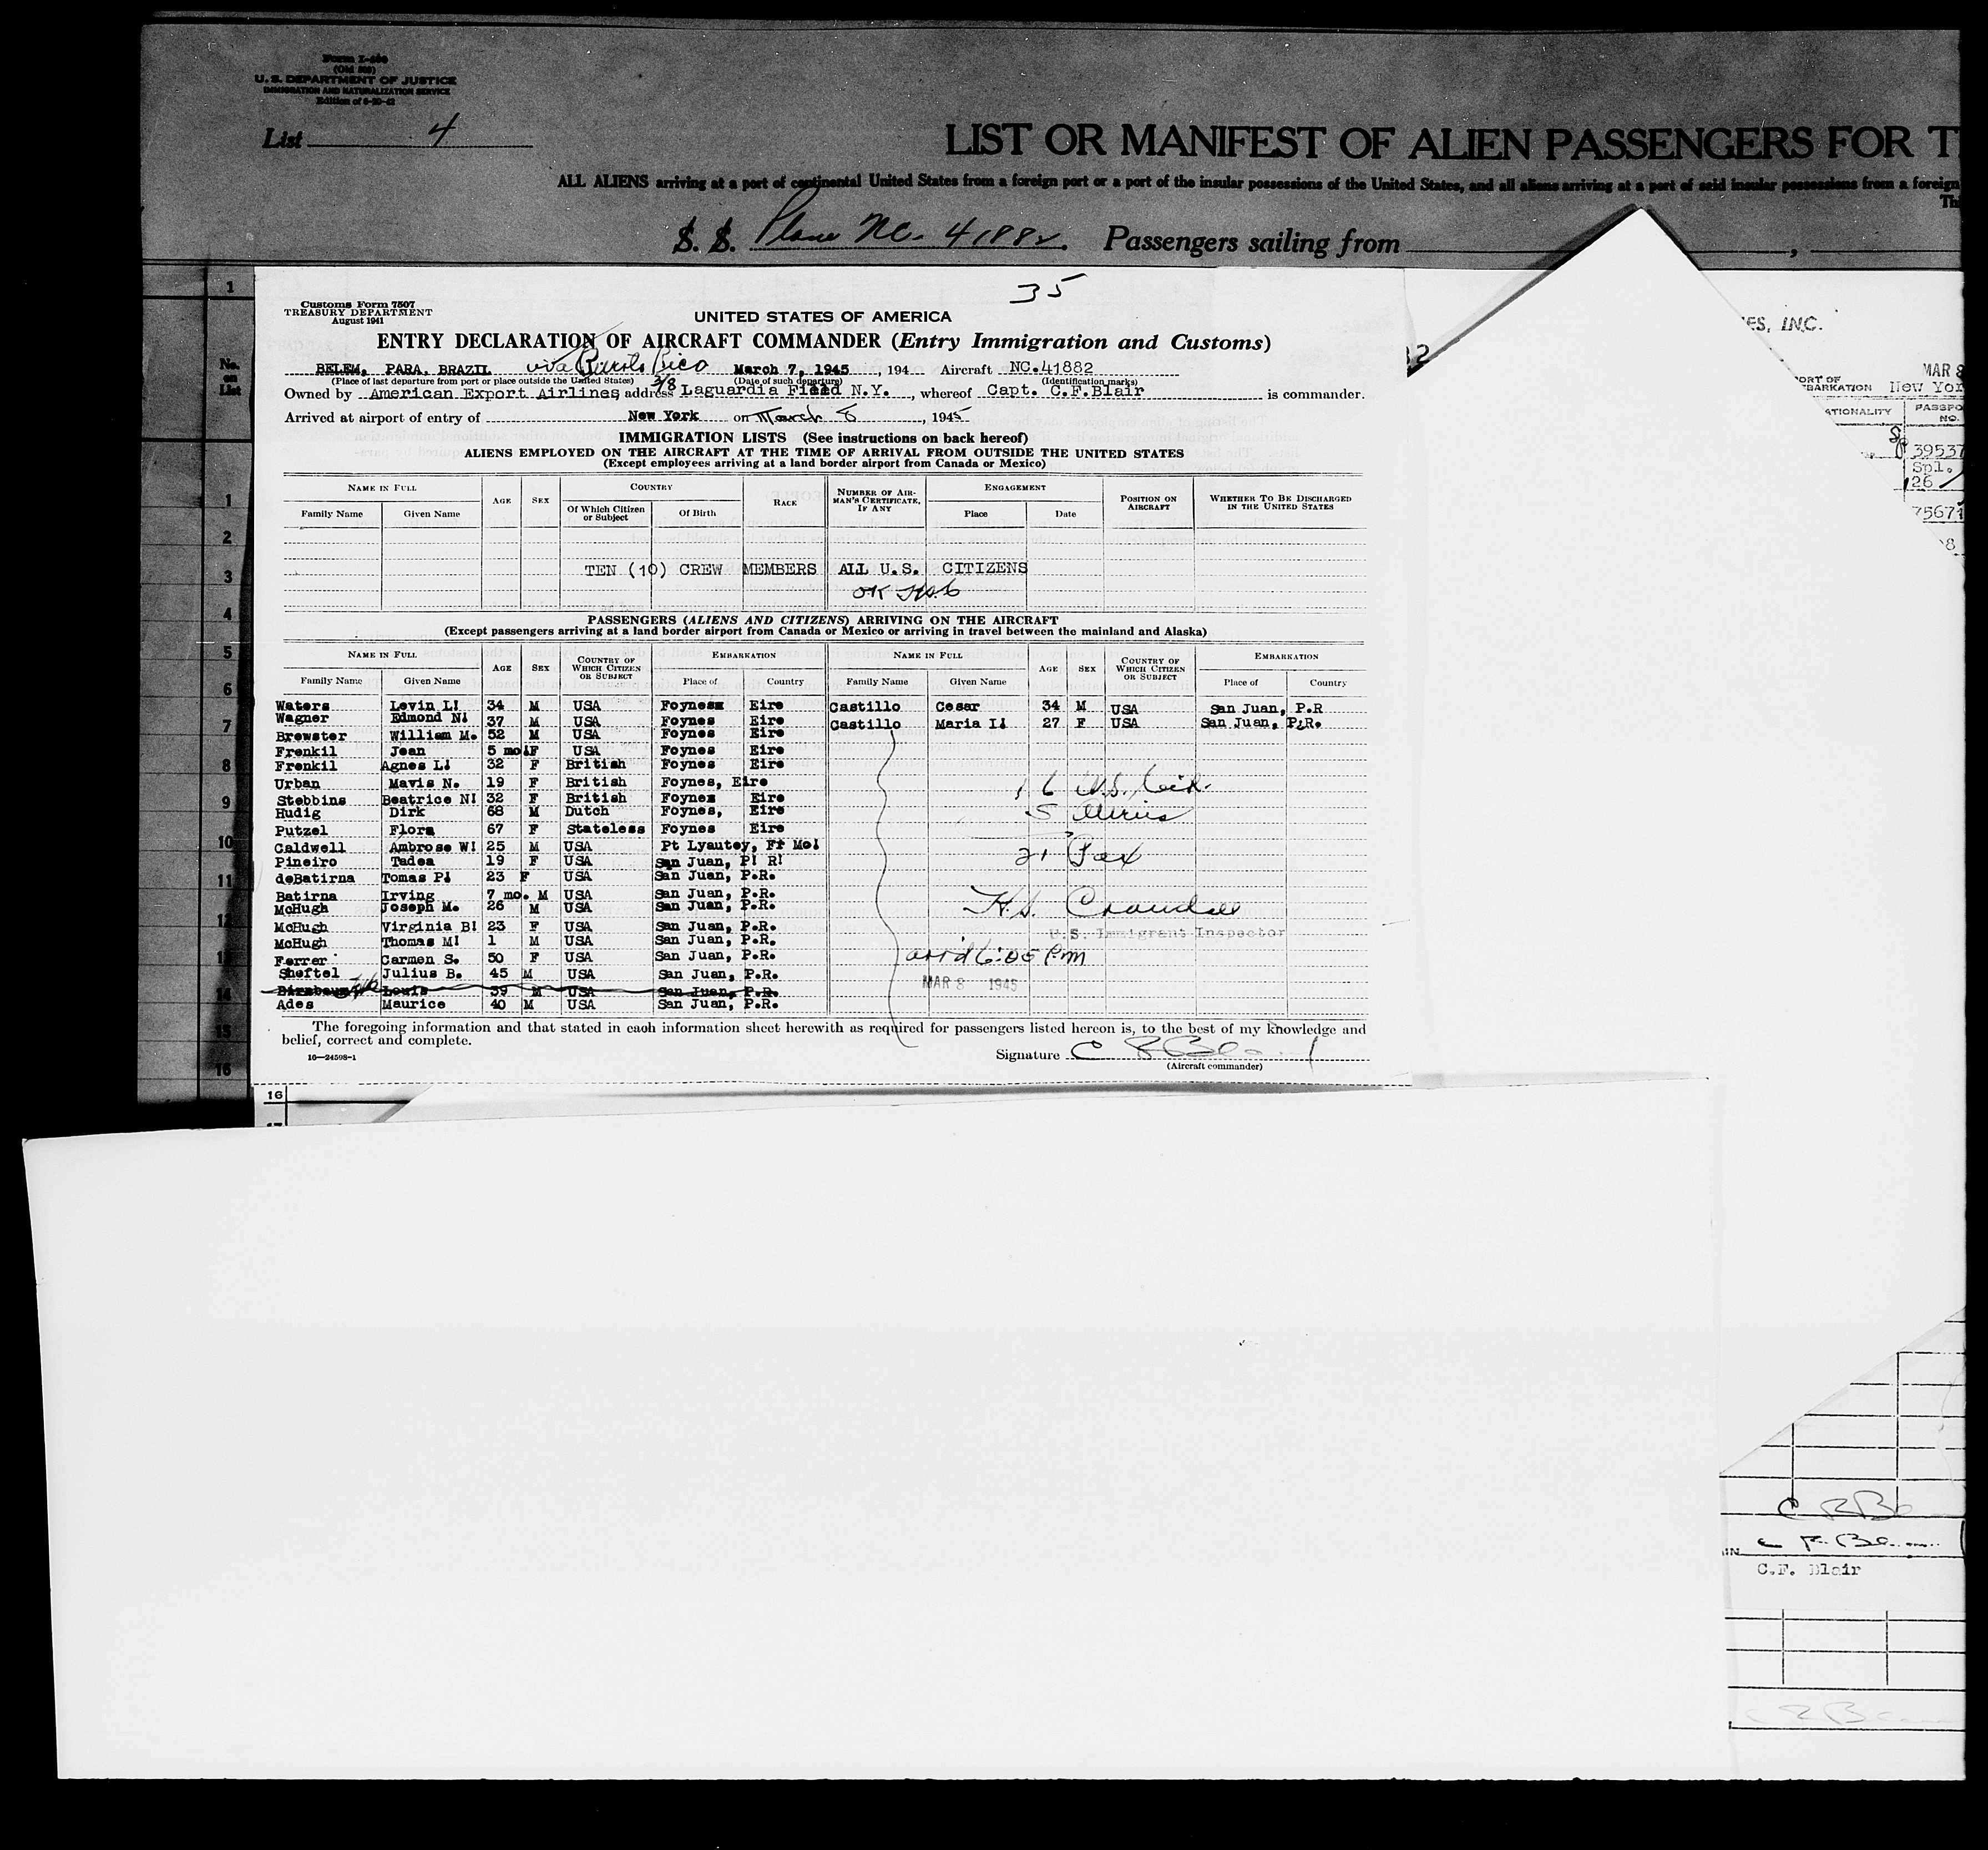 Form I-466
(Old 500)
U. S. DEPARTMENT OF JUSTICE
IMMIGRATION AND NATURALIZATION SERVICE
Edition of 6-20-42
List 4
LIST OR MANIFEST OF ALIEN PASSENGERS FOR T
ALL ALIENS arriving at a port of continental United States from a foreign port or a port of the insular possessions of the United States, and all aliens arriving at a port of said insular possessions from a foreign
Th
S. S. Plane NC. 41882. Passengers sailing from ,
35
Customs Form 7507
TREASURY DEPARTMENT
August 1941
UNITED STATES OF AMERICA
ENTRY DECLARATION OF AIRCRAFT COMMANDER (Entry Immigration and Customs)
BELEM, PARA, BRAZIL via Puerto Rico March 7, 1945, 194 Aircraft NC.41882
(Place of last departure from port or place outside the United States) 3/8 (Date of such departure) (Identification marks)
Owned by American Export Airlines, address Laguardia Field N.Y., whereof Capt. C.F.Blair is commander.
Arrived at airport of entry of New York on March 8, 1945
IMMIGRATION LISTS (See instructions on back hereof)
ALIENS EMPLOYED ON THE AIRCRAFT AT THE TIME OF ARRIVAL FROM OUTSIDE THE UNITED STATES
(Except employees arriving at a land border airport from Canada or Mexico)
NAME IN FULL AGE SEX COUNTRY RACE NUMBER OF AIRMAN'S CERTIFICATE, IF ANY ENGAGEMENT POSITION ON AIRCRAFT WHETHER TO BE DISCHARGED IN THE UNITED STATES
Family Name Given Name Of Which Citizen or Subject Of Birth Place Date
TEN (10) CREW MEMBERS ALL U.S. CITIZENS
OK
PASSENGERS (ALIENS AND CITIZENS) ARRIVING ON THE AIRCRAFT
(Except passengers arriving at a land border airport from Canada or Mexico or arriving in travel between the mainland and Alaska)
NAME IN FULL AGE SEX COUNTRY OF WHICH CITIZEN OR SUBJECT EMBARKATION NAME IN FULL AGE SEX COUNTRY OF WHICH CITIZEN OR SUBJECT EMBARKATION
Family Name Given Name Place of Country Family Name Given Name Place of Country
Waters Levin L! 34 M USA Foynes Eire Castillo Cesar 34 M USA San Juan, P.R
Wagner Edmond N! 37 M USA Foynes Eire Castillo Maria I! 27 F USA San Juan, P.R.
Brewster William M. 52 M USA Foynes Eire
Frenkil Jean 5 mo. F USA Foynes Eire
Frenkil Agnes L! 32 F British Foynes Eire
Urban Mavis N. 19 F British Foynes, Eire
Stebbins Beatrice N! 32 F British Foynes Eire
Hudig Dirk 68 M Dutch Foynes, Eire
Putzel Flora 67 F Stateless Foynes Eire
Caldwell Ambrose W! 25 M USA Pt Lyautey, Fr Mo!
Pineiro Tadea 19 F USA San Juan, P! R!
deBatirna Tomas P! 23 F USA San Juan, P.R.
Batirna Irving 7 mo. M USA San Juan, P.R.
McHugh Joseph M. 26 M USA San Juan, P.R.
McHugh Virginia B! 23 F USA San Juan, P.R.
McHugh Thomas M! 1 M USA San Juan, P.R.
Ferrer Carmen S. 50 F USA San Juan, P.R.
Sheftel Julius B. 45 M USA San Juan, P.R.
Birnbaum Louis 39 M USA San Juan, P.R.
Ades Maurice 40 M USA San Juan, P.R.
16 U.S. Cit.
5 Aliens
21 Pax
H.S. Crandall
U.S. Immigrant Inspector
arr'd 6:05 Pm
MAR 8 1945
The foregoing information and that stated in each information sheet herewith as required for passengers listed hereon is, to the best of my knowledge and
belief, correct and complete.
16—24598-1
Signature C F Blair
(Aircraft commander)
No. on List
1
1
2
3
4
5
6
7
8
9
10
11
12
13
14
15
16
16
17
ES, INC.
2
MAR 8
PORT OF
EMBARKATION New Yor
ATIONALITY PASSPO
NO.
39537
Spl.
26
75671
8
C F Bl
C F Blair
C.F. Blair